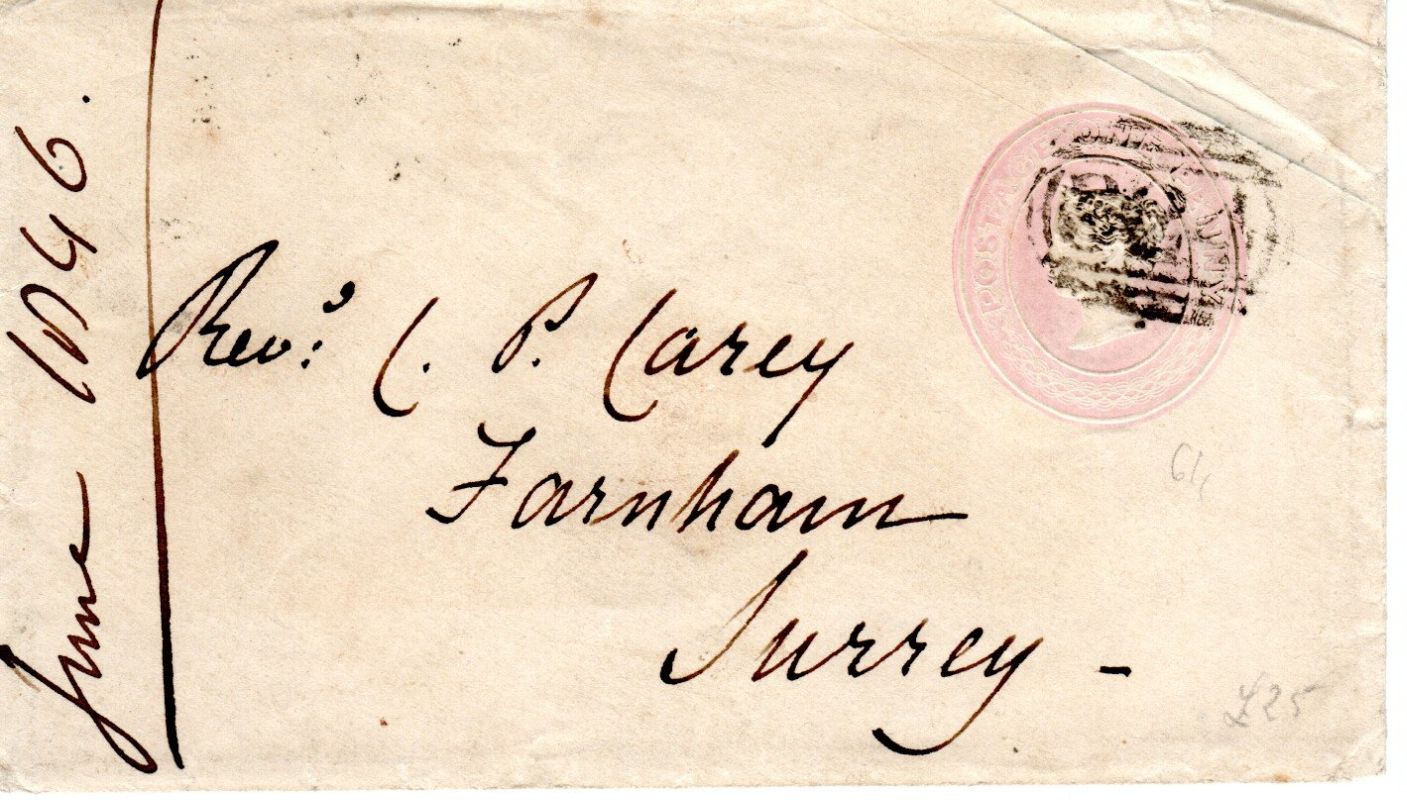 June 1846.
Rev:d C. P. Carey
Farnham
Surrey -
POSTAGE ONE PENNY
£25